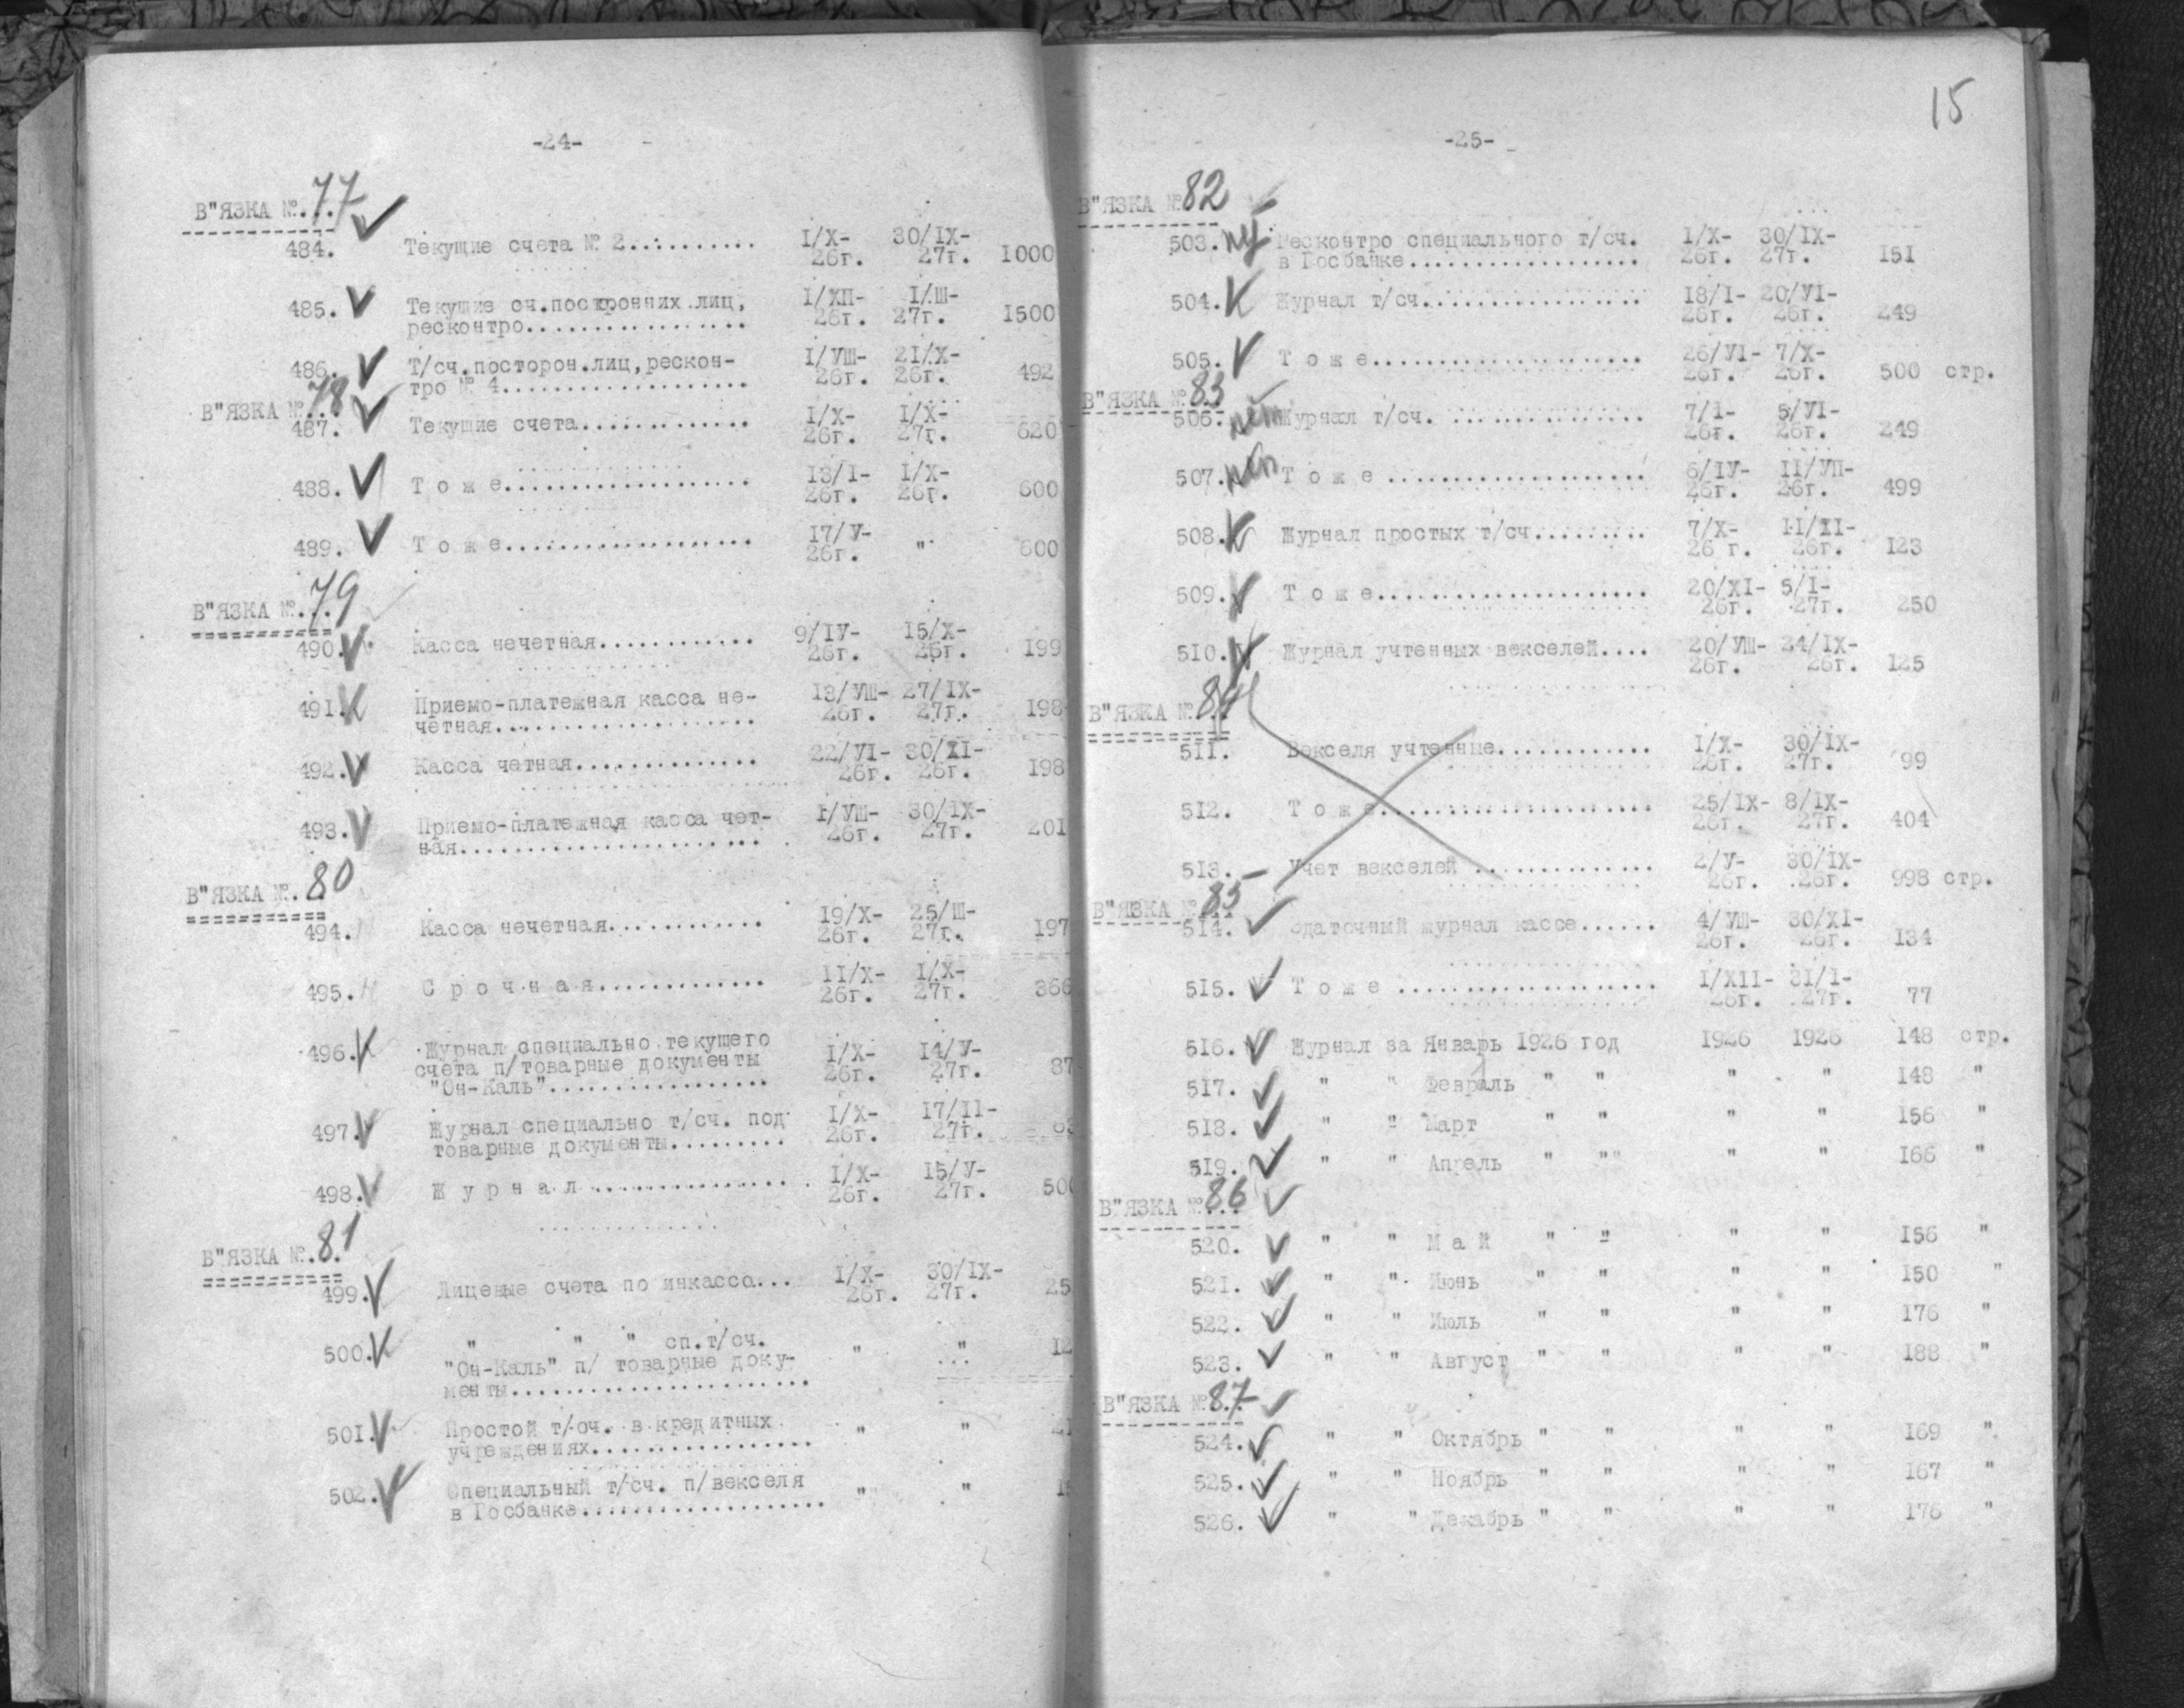 -24-
В"ЯЗКА №...77
484. Текущие счета № 2........... I/X-26г. 30/IX-27г. 1000
485. Текущие сч.посторонних лиц,
ресконтро.................. I/XII-26г. I/Ш-27г. 1500
486. Т/сч.посторон.лиц,рескон-
тро № 4.................... I/УШ-26г. 21/X-26г. 492
В"ЯЗКА №...78
487. Текущие счета.............. I/X-26г. I/X-27г. 620
488. Т о ж е.................... 13/I-26г. I/X-26г. 600
489. Т о ж е.................... 17/У-26г. " 600
В"ЯЗКА №...79
490. Касса нечетная............. 9/IУ-26г. 15/X-26г. 199
491. Приемо-платежная касса не-
четная..................... 13/УШ-26г. 27/IX-27г. 198
492. Касса четная............... 22/УI-26г. 30/XI-26г. 198
493. Приемо-платежная касса чет-
ная........................ I/УШ-26г. 30/IX-27г. 201
В"ЯЗКА №..80
494. Касса нечетная............. 19/X-26г. 25/Ш-27г. 197
495. С р о ч н а я.............. II/X-26г. I/X-27г. 366
496. Журнал специально текущего
счета п/товарные документы
"Он-Каль".................. I/X-26г. 14/У-27г. 87
497. Журнал специально т/сч. под
товарные документы......... I/X-26г. 17/11-27г.
498. Ж у р н а л ............... I/X-26г. 15/У-27г. 500
В"ЯЗКА №..81
499. Лицевые счета по инкассо... I/X-26г. 30/IX-27г. 25
500. " " " сп.т/сч.
"Он-Каль" п/ товарные доку-
менты...................... " " 12
501. Простой т/сч. в кредитных
учреждениях................ " " 21
502. Специальный т/сч. п/векселя
в Госбанке................. " "
15
-25-
В"ЯЗКА №82
503. Ресконтро специального т/сч.
в Госбанке................. I/X-26г. 30/IX-27г. 151
504. Журнал т/сч................ 13/I-26г. 20/УI-26г. 249
505. Т о ж е.................... 26/УI-26г. 7/X-26г. 500 стр.
В"ЯЗКА №83
506. нет Журнал т/сч. .............. 7/I-26г. 5/УI-26г. 249
507. Т о ж е ................... 6/IУ-26г. II/УП-26г. 499
508. Журнал простых т/сч........ 7/X-26 г. II/XI-26г. 123
509. Т о ж е.................... 20/XI-26г. 5/I-27г. 250
510. Журнал учтенных векселей.... 20/УШ-26г. 24/IX-26г. 125
В"ЯЗКА №84
511. Векселя учтенные........... I/X-26г. 30/IX-27г. 99
512. Т о ж е.................... 25/IX-26г. 8/IX-27г. 404
513. Учет векселей ............. 2/У-26г. 30/IX-26г. 998 стр.
В"ЯЗКА №85
514. Сдаточный журнал кассе...... 4/УШ-26г. 30/XI-26г. 134
515. Т о ж е ................... I/XII-26г. 31/1-27г. 77
516. Журнал за Январь 1926 год 1926 1926 148 стр.
517. " " Февраль " " " " 148 "
518. " " Март " " " " 156 "
519. " " Апрель " " " " 166 "
В"ЯЗКА №86
520. " " М а й " " " " 156 "
521. " " Июнь " " " " 150 "
522. " " Июль " " " " 176 "
523. " " Август " " " " 188 "
В"ЯЗКА №87
524. " " Октябрь " " " " 169 "
525. " " Ноябрь " " " " 167 "
526. " " Декабрь " " " " 176 "